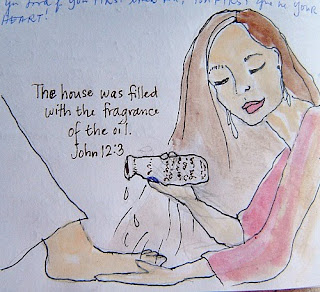 you
if you FIRST
FIRST
YOUR
HEART!
The house was filled
with the fragrance
of the oil.
John 12:3